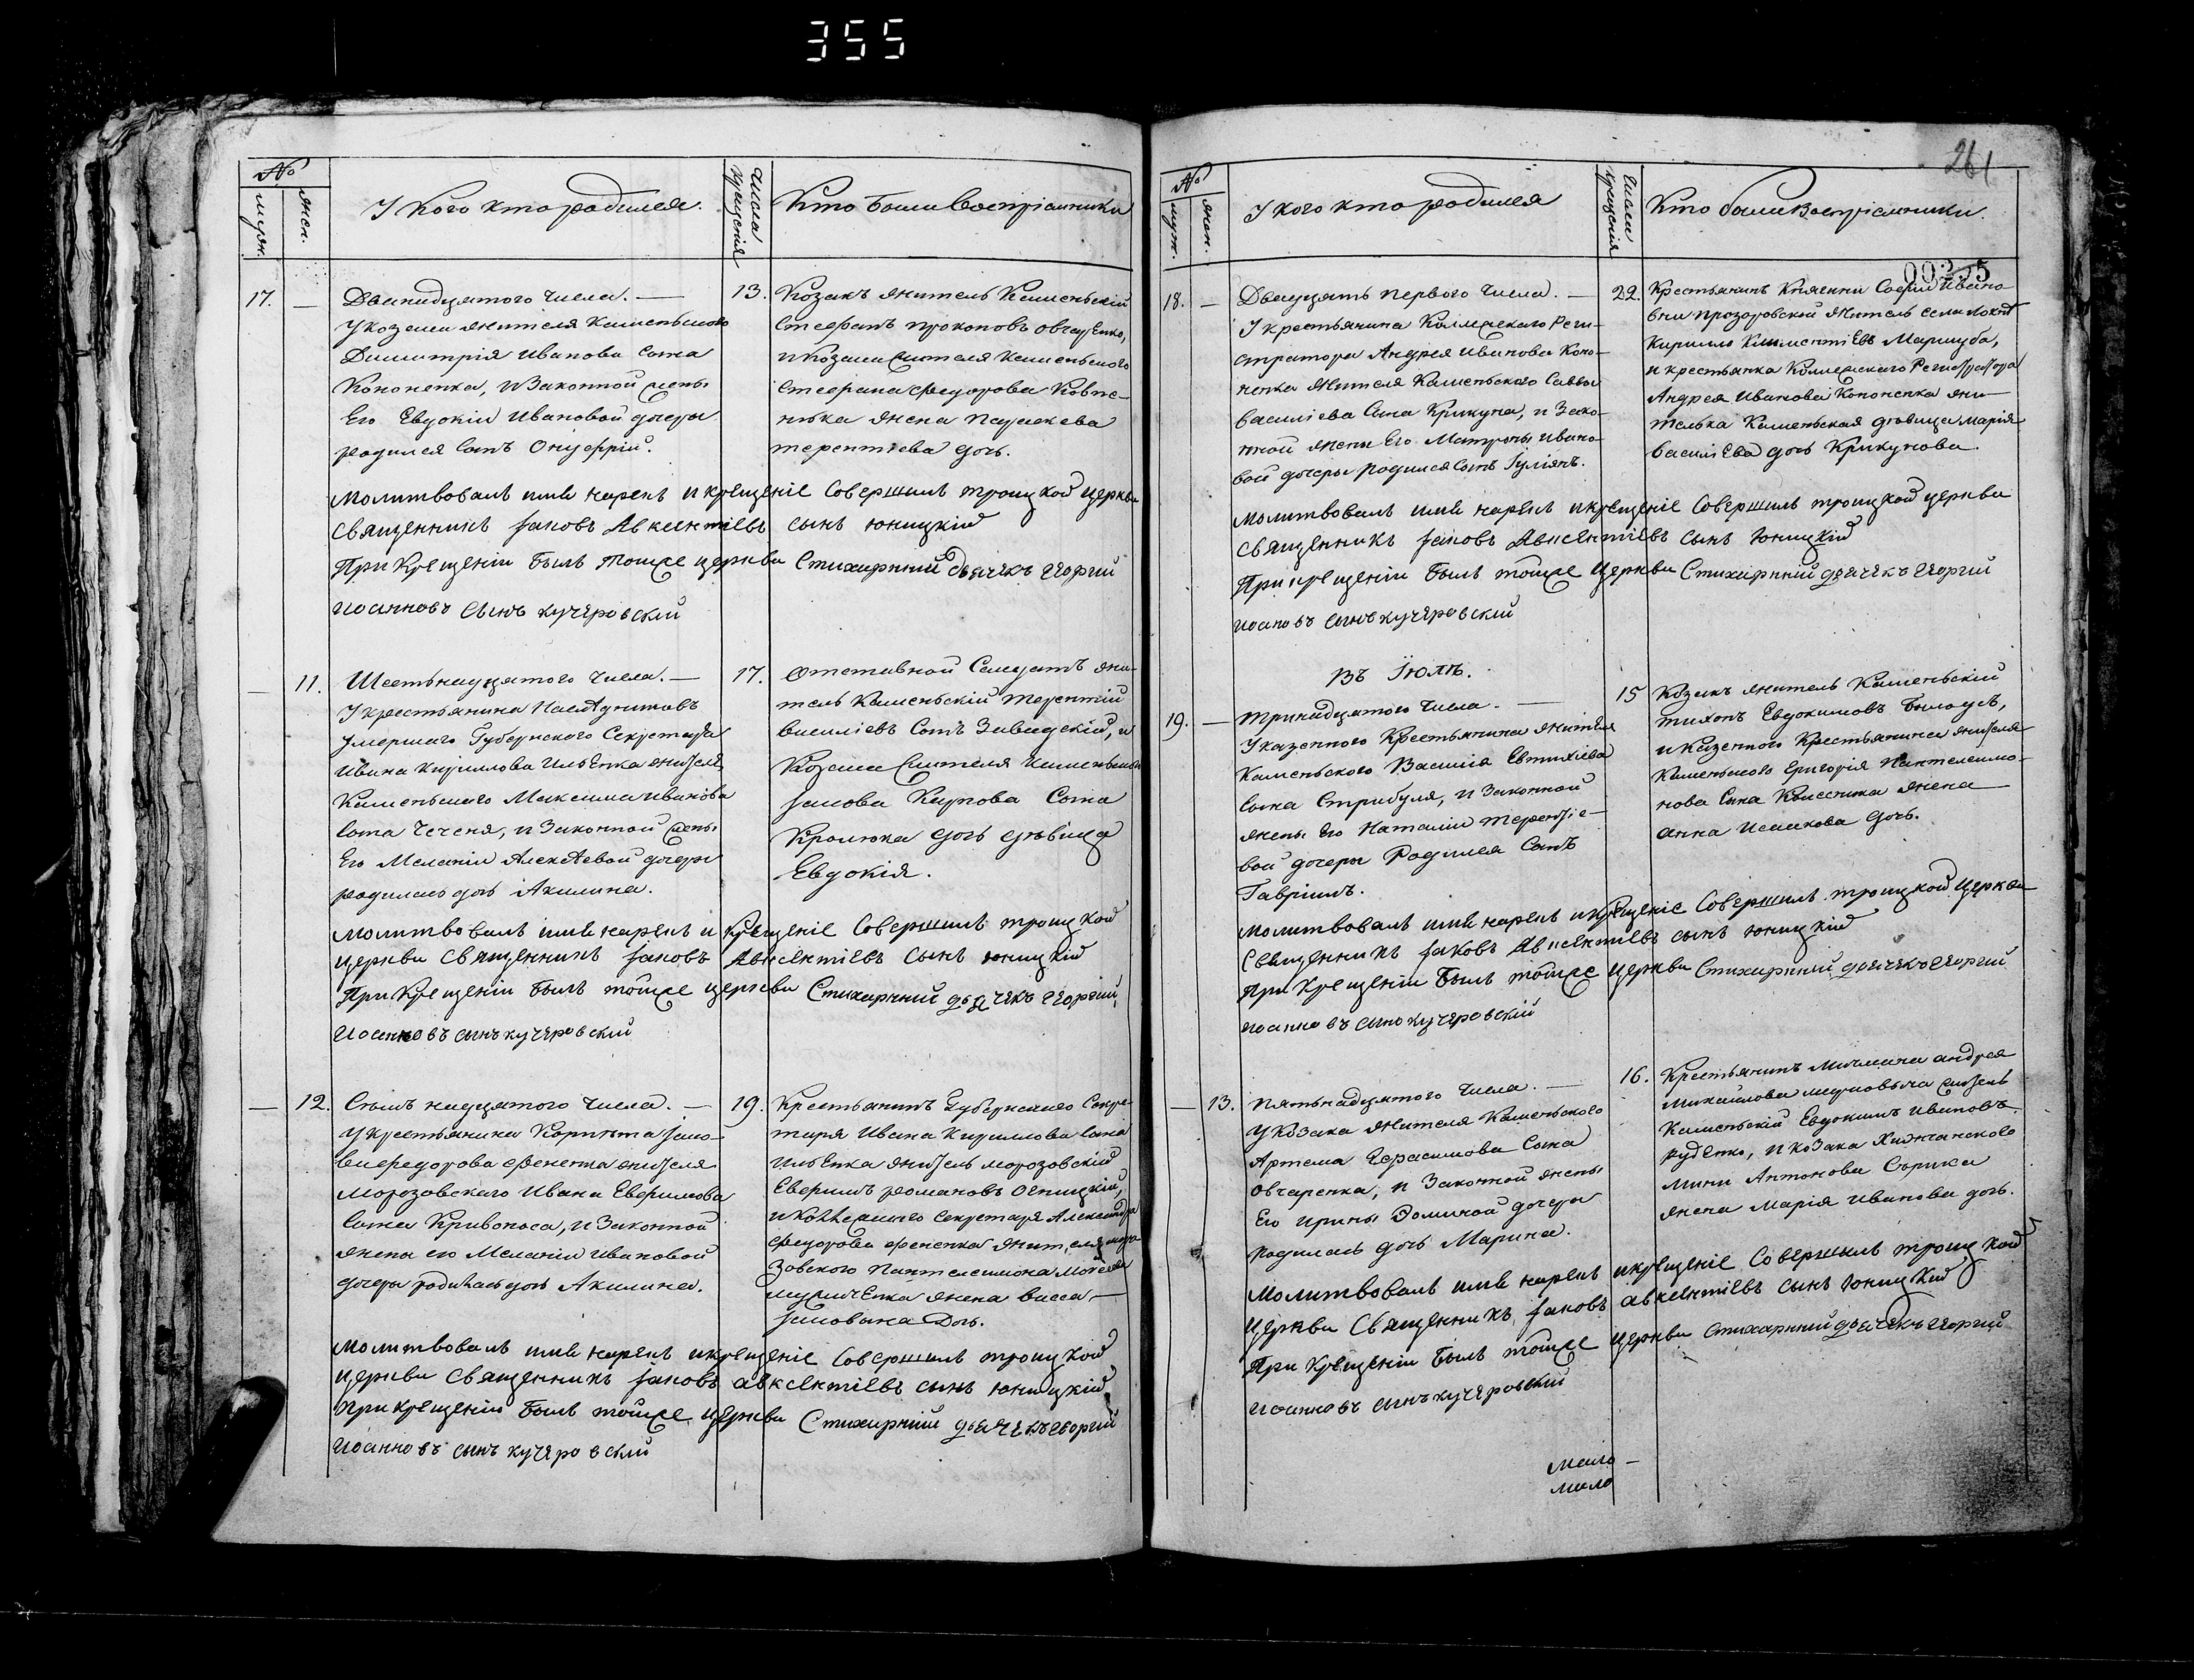 355
№
мужс.
женс.
У кого кто родился.
Числа крещенія
Кто были Воспріемники
17. — Дванадцятого числа. —
У козака жителя Каменьского
Димитрія Иванова сына
Кононенка, и Законной жены
Его Евдокіи Ивановой дочеры
родился сынъ Онуфрій.
13. Козакъ житель Каменьскій
Стефанъ Прокоповъ Овчаренко,
и Козака жителя Каменьского
Стефана Федорова
жена
терентіева дочь.
Молитвовалъ имя нарекъ и крещеніе Совершилъ троицкой церкви
Священникъ Іаковъ Авксентіевъ сынъ Юницкій
При Крещеніи былъ тойже церкви Стихарний дьячекъ Георгий
Иоанновъ Сынъ Кучеровский
— 11. Шестьнадцятого Числа. —
У крестьянина
умершаго Губернского Секретаря
Ивана Кирилова Ильенка жителя
Каменьского Максима Иванова
сына Чеченя, и Законной жены
Его Меланіи Алексѣевой дочеры
родилась дочь Акилина.
17. Отставной Салдатъ жи-
тель Каменьскій Терентій
Василіевъ Сынъ Завадскій, и
Козака жителя Каменьского
Іакова Карпова Сына
Кролюка дочь дѣвица
Евдокія.
Молитвовалъ имя нарекъ и крещеніе Совершилъ троицкой
церкви Священникъ Іаковъ Авксентіевъ Сынъ Юницкій
При Крещеніи былъ тойже церкви Стихарний дьячекъ Георгий
Иоанновъ сынъ Кучеровский
— 12. Семь надцятого числа. —
У крестьянина Корнета Іако-
ва Федорова Фененка жителя
Морозовского Ивана Евфимова
сына Кривоноса, и Законной
жены его Меланіи Ивановой
дочеры родилась дочь Акилина.
19. Крестьянинъ Губернского Секре-
таря Ивана Кирилова сына
Ильенка житель Морозовский
Евфимъ Романовъ
и Коллежского Секретаря Александра
Федорова Фененка жителя Моро-
зовского Пантелеимона Моисеева
жена Васса
Іаковына Дочь.
Молитвовалъ имя нарекъ и крещеніе Совершилъ троицкой
церкви Священникъ Іаковъ Авксентіевъ сынъ Юницкій
При крещеніи былъ тойже церкви Стихарний дьячекъ Георгий
Иоанновъ сынъ Кучеровский
261
00355
№
мужс.
женс.
У кого кто родился
Числа крещенія
Кто были Воспріемники.
18. — Двадцять первого числа. —
У крестьянина Коллежского Реги-
стратора Андрея Иванова Коно-
ненка жителя Каменьского Саввы
Василіева Сына Крикуна, и Зако-
нной жены Его Матроны Ивано-
вой дочеры родился сынъ Іуліянъ.
22. Крестьянинъ Княгини Софіи Ивано-
вни Прозоровской житель села
Кирилло Климентіевъ
и крестьянка Коллежского Регистратора
Андрея Иванова Кононенка жи-
телька Каменьская дѣвица Марія
Василіева дочь Крикунова.
Молитвовалъ имя нарекъ и крещеніе Совершилъ троицкой церкви
Священникъ Іаковъ Авксентіевъ Сынъ Юницкій
При крещеніи былъ тойже церкви Стихарний дьячекъ Георгий
Иоановъ сынъ Кучеровский
Въ Іюлѣ.
19. — Тринадцятого Числа. —
У казенного Крестьянина жителя
Каменьского Василія Евтихіева
Сына Стрибуля, и Законной
жены Его Наталіи Терентіе-
вой дочеры Родился Сынъ
Гавріилъ.
15 Козакъ житель Каменьский
Тихонъ Евдокимовъ Билоусъ,
и Казенного Крестьянина жителя
Каменьского Григорія Пантелеимо-
нова Сына Колесника жена
Анна Исаакова дочь.
Молитвовалъ имя нарекъ и крещеніе Совершилъ троицкой церкви
Священникъ Іаковъ Авксентіевъ сынъ Юницкій
При Крещеніи былъ тойже церкви Стихарний дьячекъ Георгий
Иоанновъ сынъ Кучеровский
— 13. Пятьнадцятого Числа. —
У Козака жителя Каменьского
Артема Герасимова Сына
Овчаренка, и Законной жены
Его Ирины Доминой дочеры
родилась дочь Марина.
16. Крестьянинъ Мичмана Андрея
Михайлова житель
Каменьский Евдокимъ Ивановъ
Руденко, и Козака
Мини Антонова
жена Марія Иванова дочь.
Молитвовалъ имя нарекъ и крещеніе Совершилъ троицкой
церкви Священникъ Іаковъ Авксентіевъ сынъ Юницкий
При Крещеніи былъ тойже церкви Стихарний дьячекъ Георгий
Иоанновъ сынъ Кучеровский